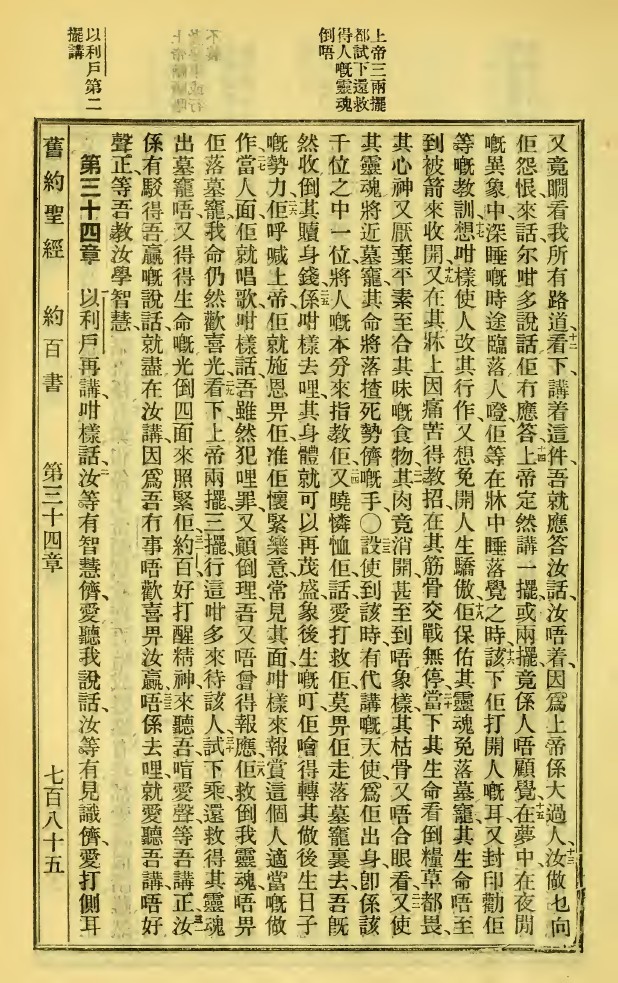 上帝三兩擺
都試下還救
得人嘅靈魂
倒唔
以利戶第二
擺講
又竟瞯看我所有路道、看下、講着這件、吾就應答汝話、汝唔着、因爲上帝係大過人、汝做乜向
佢怨恨來話尔咁多說話佢冇應答、上帝定然講一擺、或兩擺、竟係人唔顧覺、在夢中、在夜間
嘅異象中、深睡嘅時途、臨落人噔、佢等在牀中睡落覺之時、該下佢打開人嘅耳又封印勸佢
等嘅教訓、想咁樣使人改其行作、又想免開人生驕傲、佢保佑其靈魂免落墓竉、其生命唔至
到被箭來收開、又在其牀上因痛苦得教招、在其筋骨交戰無停、當下其生命看倒糧草都畏、
其心神又厭棄平素至合其味嘅食物、其肉竟消開、甚至到唔象樣、其枯骨又唔合眼看、又使
其靈魂將近墓竉、其命將落揸死勢儕嘅手、○設使到該時、有代講嘅天使、爲佢出身、卽係該
千位之中一位、將人嘅本分來指教佢、又曉憐恤佢、話愛打救佢、莫畀佢走落墓竉裏去、吾旣
然收倒其贖身錢、係咁樣去哩、其身體就可以再茂盛象後生嘅叮、佢噲得轉其做後生日子
嘅勢力、佢呼喊上帝、佢就施恩畀佢、准佢懷緊樂意、常見其面、咁樣來報賞這個人適當嘅做
作、當人面佢就唱歌咁樣話、吾雖然犯哩罪、又顚倒理、吾又唔曾得報應、佢救倒我靈魂唔畀
佢落墓竉、我命仍然歡喜光、看下上帝兩擺三擺、行這咁多來待該人、試下乘還救得其靈魂
出墓竉唔、又得得生命嘅光倒四面來照緊佢、約百好打醒精神來聽吾、喑愛聲等吾講、正汝
係有駁得吾贏嘅說話、就盡在汝講、因爲吾冇事唔歡喜畀汝贏、唔係去哩、就愛聽吾講唔好
聲、正等吾教汝學智慧、
第三十四章　以利戶再講、咁樣話、汝等有智慧儕、愛聽我說話、汝等有見識儕、愛打側耳
舊約聖經　約百書　第三十四章　七百八十五